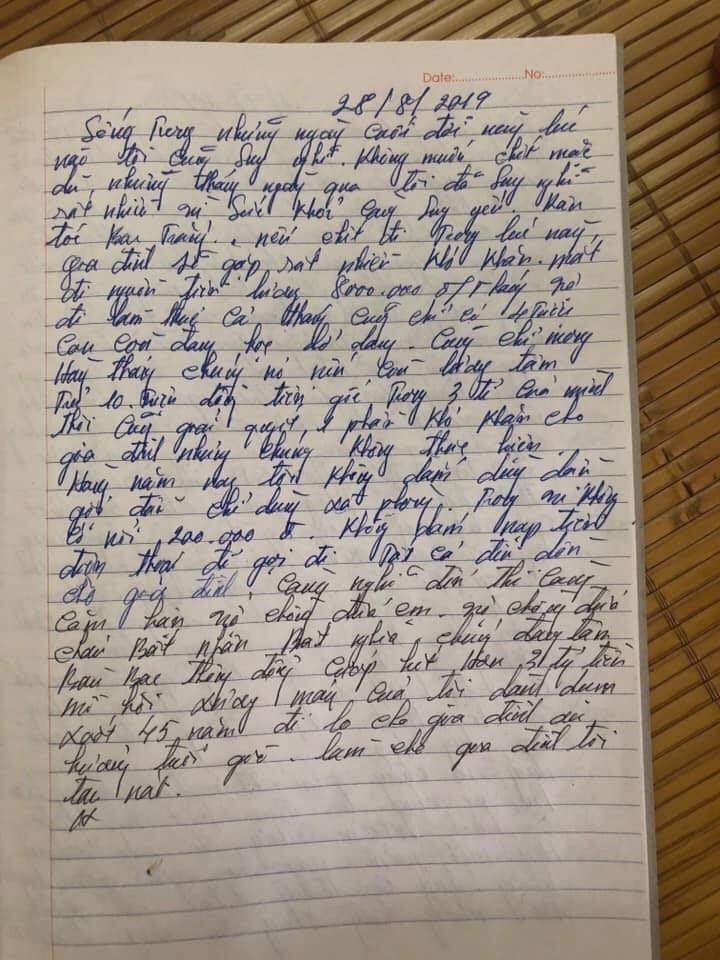 Date:..................No:..................
28/8/2019
Sống Trong những ngày cuối đời này lúc
nào tôi cũng suy nghĩ. Không muốn chết mặc
dù, những tháng ngày qua tôi đã suy nghĩ
rất nhiều vì sức khỏe càng suy yếu. Hàn
tới Ban Trắng. nếu chết đi Trong lúc này,
gia đình sẽ gặp rất nhiều khó khăn. mất
đi nguồn tiền lương 8000.000 đ/Tháng vợ
đi làm thuê cả tháng cũng chỉ có 4 Triệu
con còn đang học dở dang. Cũng chỉ mong
Hàng tháng chúng nó nếu còn lương tâm
Trả 10 Triệu đồng tiền gốc Trong 3 tỉ của mình
thôi cũng giải quyết 1 phần khó khăn cho
gia đình nhưng chúng không thực hiện.
Hàng năm nay tôi không dám dùng dầu
gội đầu chỉ dùng xà phòng. Trong ví không
có nổi 200.000 đ. Không dám nạp tiền
điện thoại để gọi đi Tất cả đều dồn
cho gia đình. Càng nghĩ đến thì càng
căm hận vợ chồng đứa em. vợ chồng đứa
cháu Bất nhân Bất nghĩa chúng đang tâm
Bàn Bạc thông đồng cướp hết Hơn 3 tỷ tiền
mồ hôi xương máu của tôi dành dụm
suốt 45 năm để lo cho gia đình an
hưởng tuổi già. làm cho gia đình tôi
tan nát.